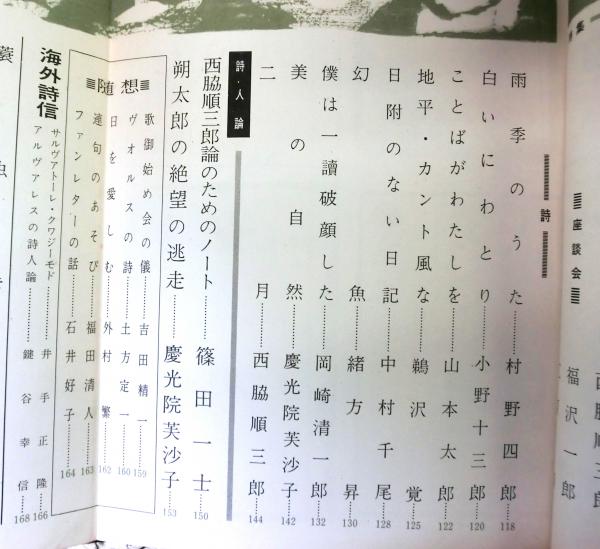 座談会
西脇順三郎
福沢一郎
詩
雨季のうた………村野四郎 118
白いにわとり………小野十三郎 120
ことばがわたしを………山本太郎 122
地平・カント風な………鵜沢覚 125
日附のない日記………中村千尾 128
幻魚………緒方昇 130
僕は一讀破顔した………岡崎清一郎 132
美の自然………慶光院芙沙子 142
二月………西脇順三郎 144
詩・人論
西脇順三郎論のためのノート………篠田一士 150
朔太郎の絶望の逃走………慶光院芙沙子 153
随想
歌御始め会の儀………吉田精一 159
ヴォルスの詩………土方定一 160
日を愛しむ………外村繁 162
連句のあそび………福田清人 163
ファンレターの話………石井好子 164
海外詩信
サルヴァトーレ・クワジーモド………井手正隆 166
アルヴァレスの詩人論………鍵谷幸信 168